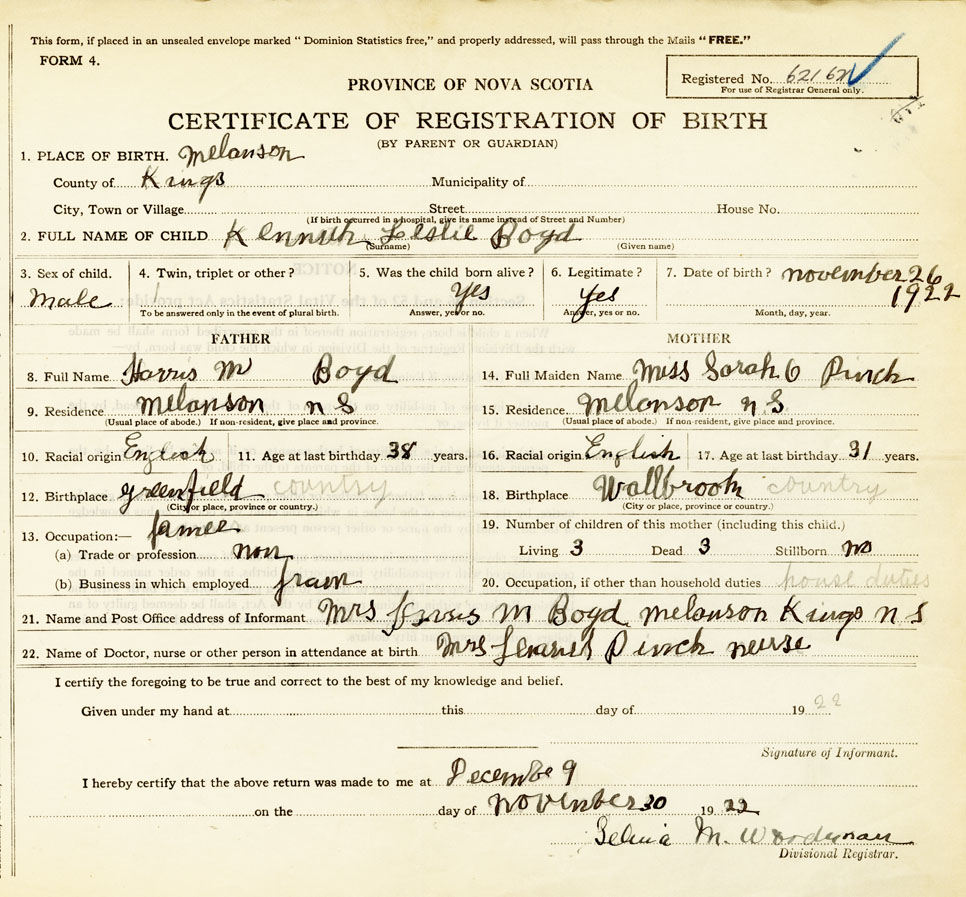 This form, if placed in an unsealed envelope marked "Dominion Statistics free," and properly addressed, will pass through the Mails "FREE."
FORM 4.
Registered No. 62162
For use of Registrar General only.
PROVINCE OF NOVA SCOTIA
CERTIFICATE OF REGISTRATION OF BIRTH
(BY PARENT OR GUARDIAN)
1. PLACE OF BIRTH. Melanson
County of Kings Municipality of
City, Town or Village Street House No.
(If birth occurred in a hospital, give its name instead of Street and Number)
2. FULL NAME OF CHILD Kennith Leslie Boyd
(Surname) (Given name)
3. Sex of child. 4. Twin, triplet or other? 5. Was the child born alive? 6. Legitimate? 7. Date of birth? november 26
male yes yes 1922
To be answered only in the event of plural birth. Answer, yes or no. Answer, yes or no. Month, day, year.
FATHER MOTHER
8. Full Name Harris M Boyd 14. Full Maiden Name Miss Sarah O Pinch
9. Residence melanson n S 15. Residence melanson n. S.
(Usual place of abode.) If non-resident, give place and province. (Usual place of abode.) If non-resident, give place and province.
10. Racial origin English 11. Age at last birthday 38 years. 16. Racial origin English 17. Age at last birthday 31 years.
12. Birthplace greenfield country 18. Birthplace Wallbrook country
(City or place, province or country.) (City or place, province or country.)
13. Occupation:— 19. Number of children of this mother (including this child.)
(a) Trade or profession Living 3 Dead 3 Stillborn no
(b) Business in which employed 20. Occupation, if other than household duties house duties
21. Name and Post Office address of Informant Mrs M Boyd melanson Kings n S
22. Name of Doctor, nurse or other person in attendance at birth Mrs Pinch nurse
I certify the foregoing to be true and correct to the best of my knowledge and belief.
Given under my hand at this day of 19 22
Signature of Informant.
I hereby certify that the above return was made to me at December 9
on the day of november 30 19 22
M. Woodman
Divisional Registrar.